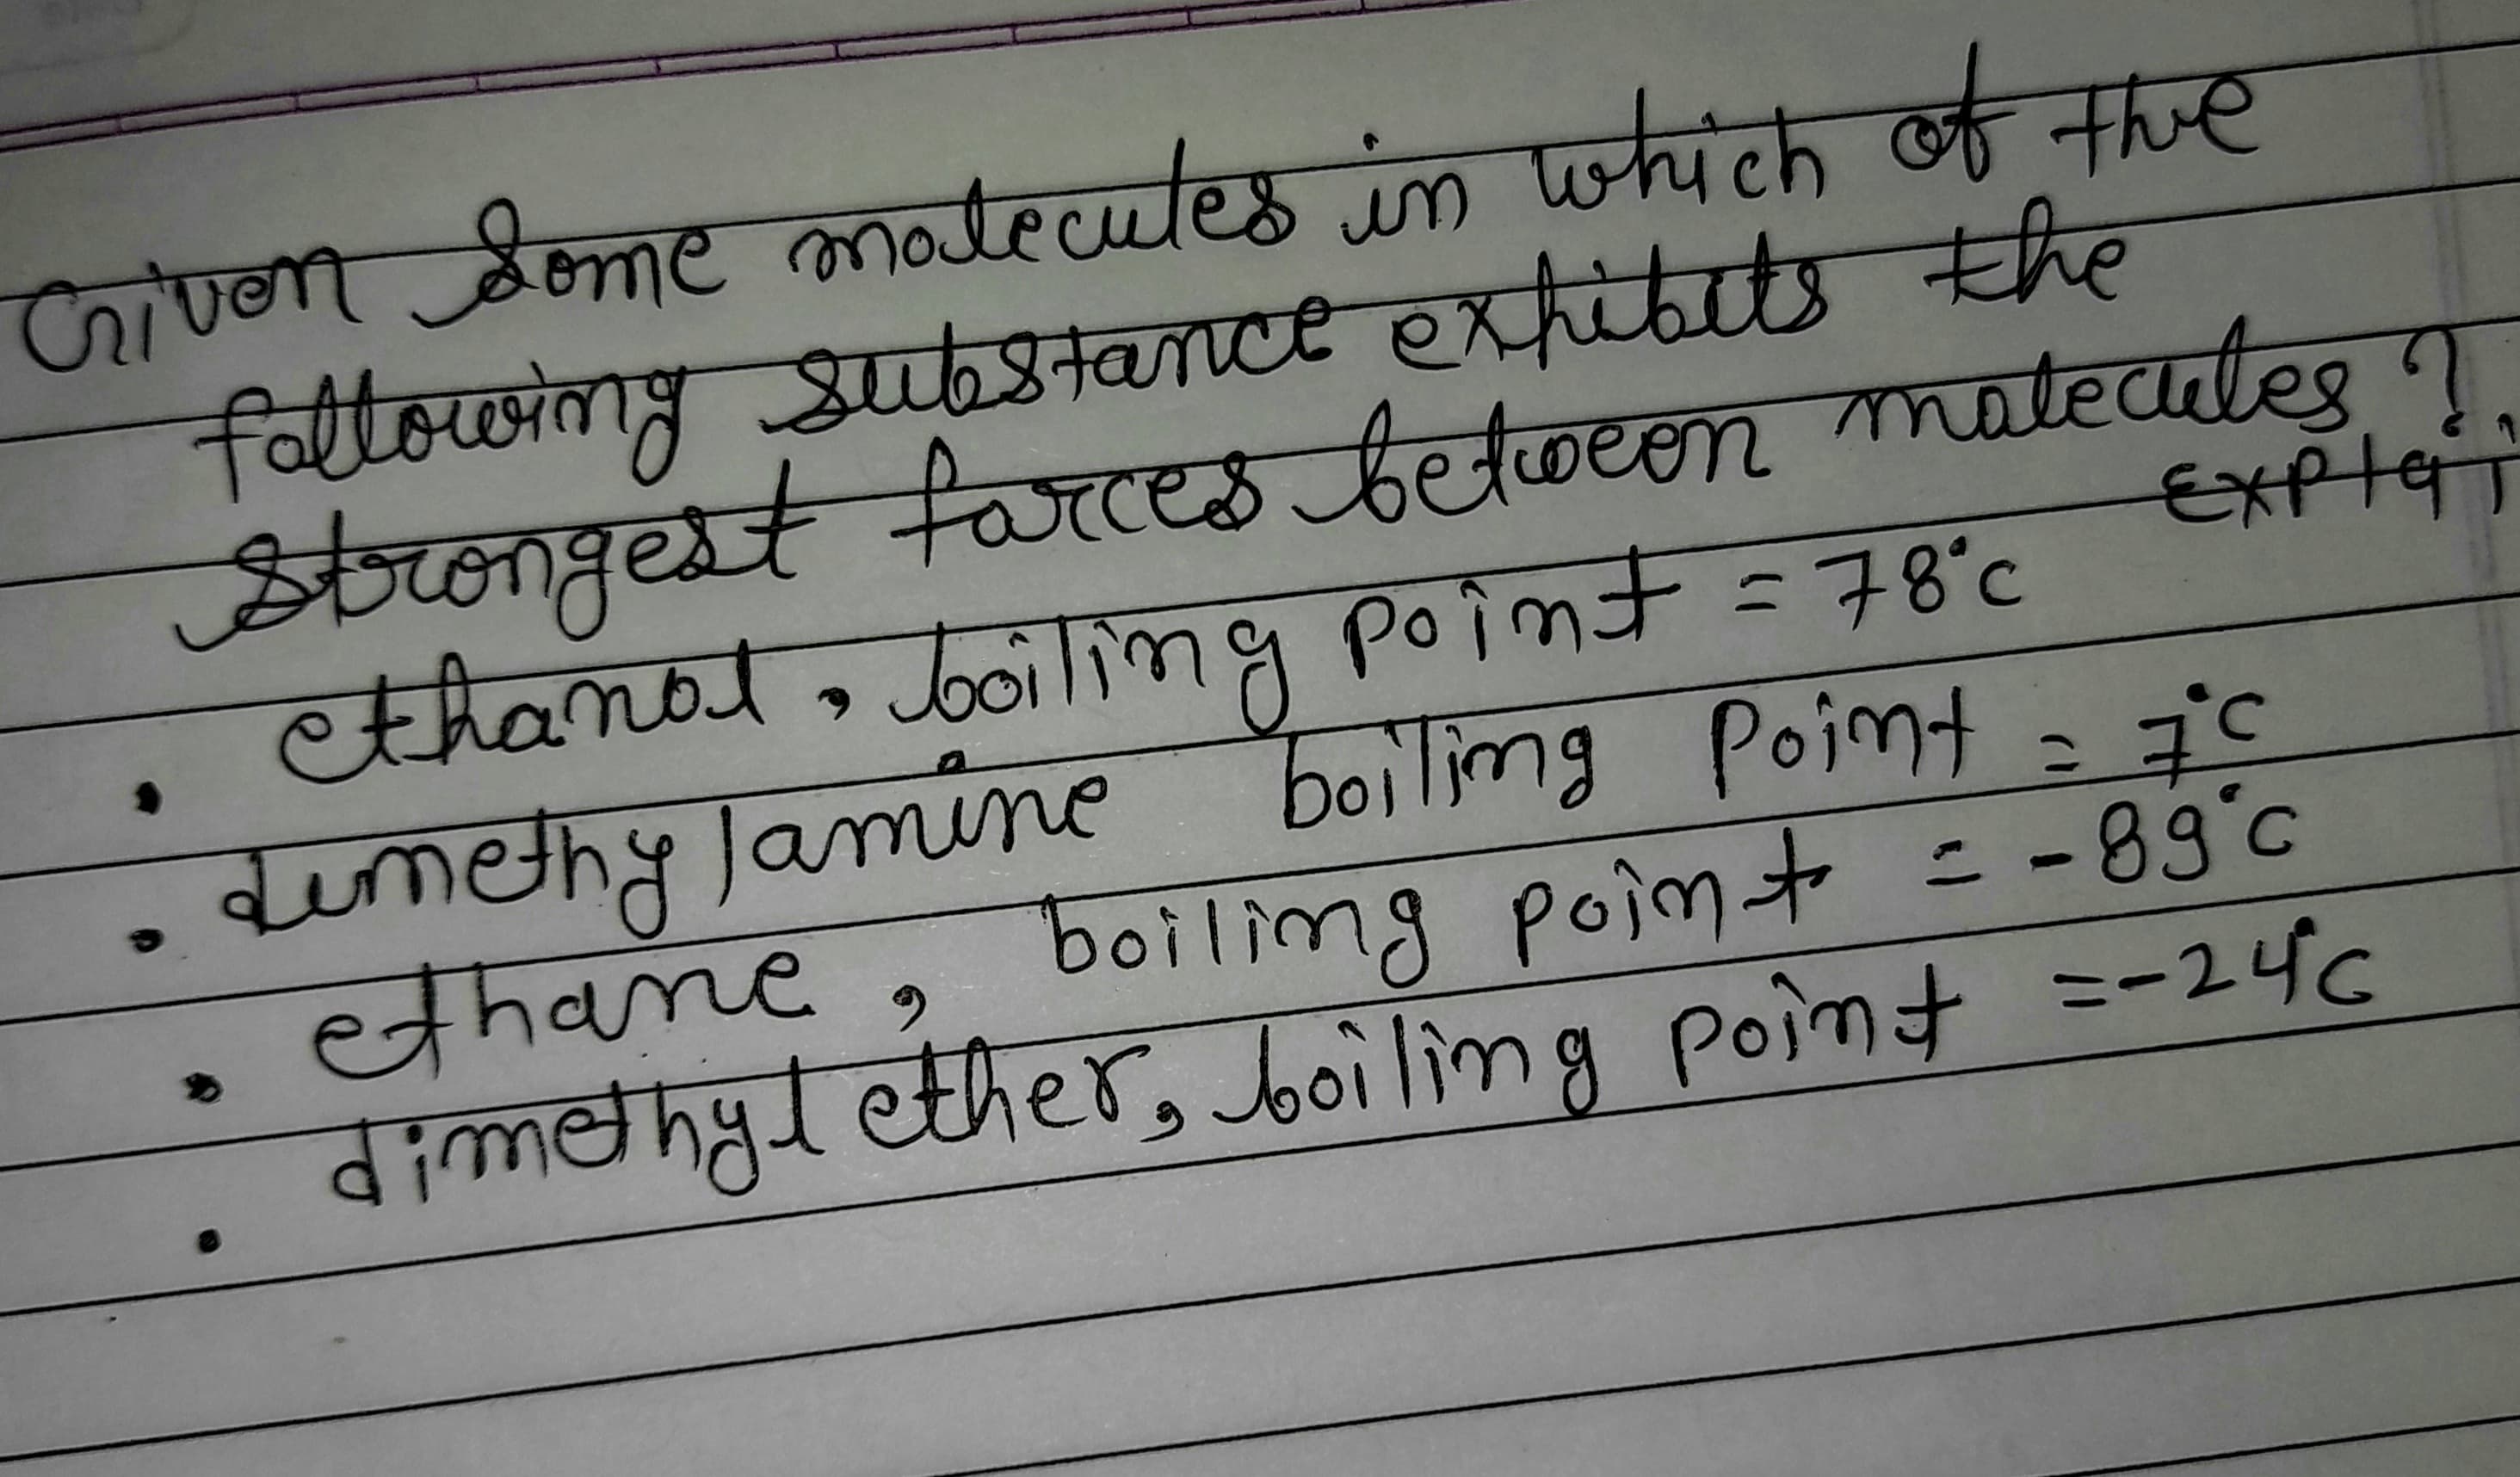 Given some molecules in which of the
following substance exhibits the
strongest forces between molecules?
Explai
• ethanol, boiling point = 78°C
• dimethylamine boiling point = 7°C
• ethane, boiling point = -89°C
• dimethyl ether, boiling point = -24°C